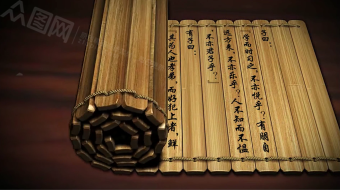 子曰：
『学而时习之，不亦悦乎？有朋自
远方来，不亦乐乎？人不知而不愠
，不亦君子乎？』
有子曰：
『其为人也孝弟，而好犯上者，鲜
众图网